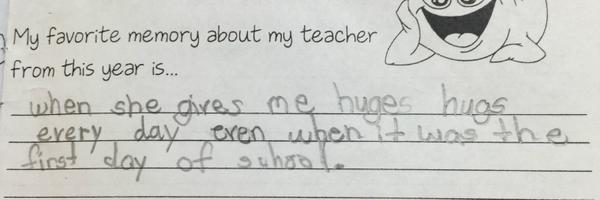 My favorite memory about my teacher
from this year is...
when she gives me huges hugs
every day even when it was the
first day of school.